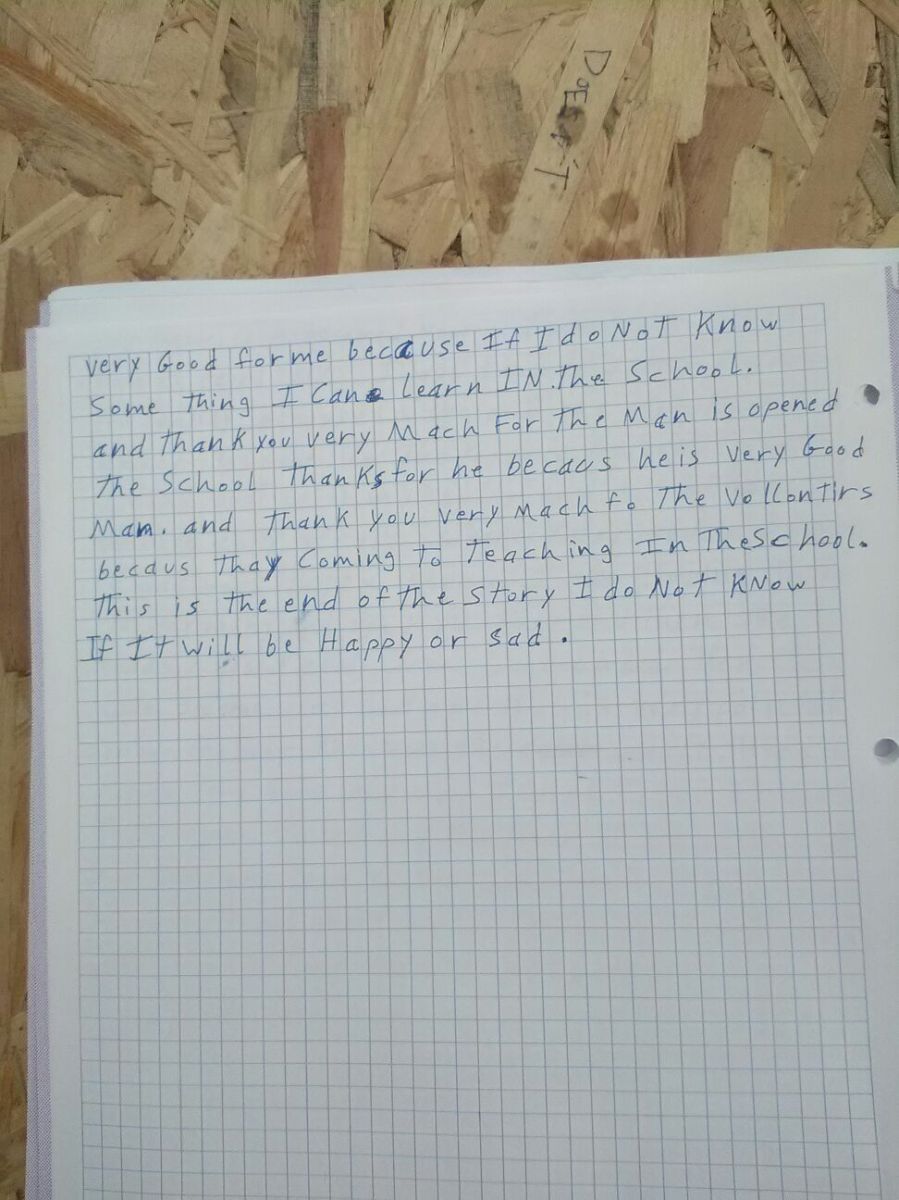 DOESN'T
very Good for me because If I do Not Know
Some thing I Can learn IN the School.
and Thank you very Mach For The Man is opened
the School Thanks for he becaus he is very Good
Man. and thank you very Mach fo The Vollontirs
becaus thay Coming To Teaching In The School.
This is the end of the Story I do Not KNow
If It will be Happy or sad.